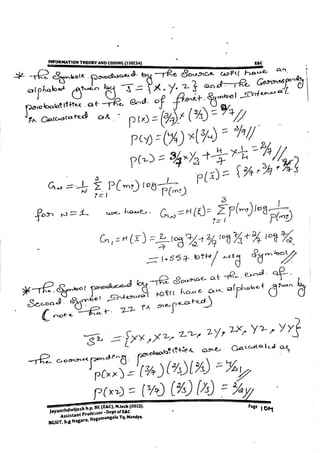 INFORMATION THEORY AND CODING (15EC54) E&C
* The Symbols produced by the Source will have an
alphabet given by S = {X, Y, Z} and the Corresponding
probabilities at the end of first Symbol Interval
is Calculated as P(x) = (3/7) × (2/3) = 2/7 //
P(y) = (4/7) × (3/4) = 3/7 //
P(z) = 3/7 × 1/3 + 4/7 × 1/4 = 2/7 //
P(S) = {2/7, 3/7, 2/7}
G_N = 1/N Σ P(m_i) log 1/P(m_i)
for N = 1 we have. G_N = H(S) = Σ P(m_i) log 1/P(m_i)
G_1 = H(S) = 2/7 log 7/2 + 3/7 log 7/3 + 2/7 log 7/2
= 1.557 bits / Msg Symbol //
* The Symbol produced by the Source at the end of
Second Symbol Interval will have an alphabet given by
(note that ZZ is repeated)
S² = {XX, XZ, ZZ, ZY, ZX, YZ, YY}
The corresponding probabilities are Calculated as
P(XX) = (3/7) (2/3) (2/3) = 4/21 //
P(XZ) = (3/7) (2/3) (1/3) = 2/21 //
Jayanthdwijesh h.p, BE (E&C), M.tech (DECS). Page
Assistant Professor – Dept of E&C
BGSIT, b.g Nagara, Nagamangala Tq, Mandya.